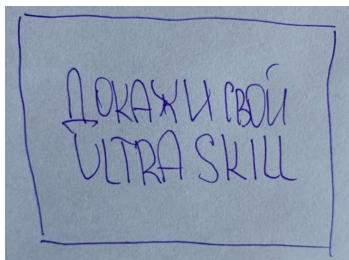 ДОКАЖИ СВОЙ
ULTRA SKILL